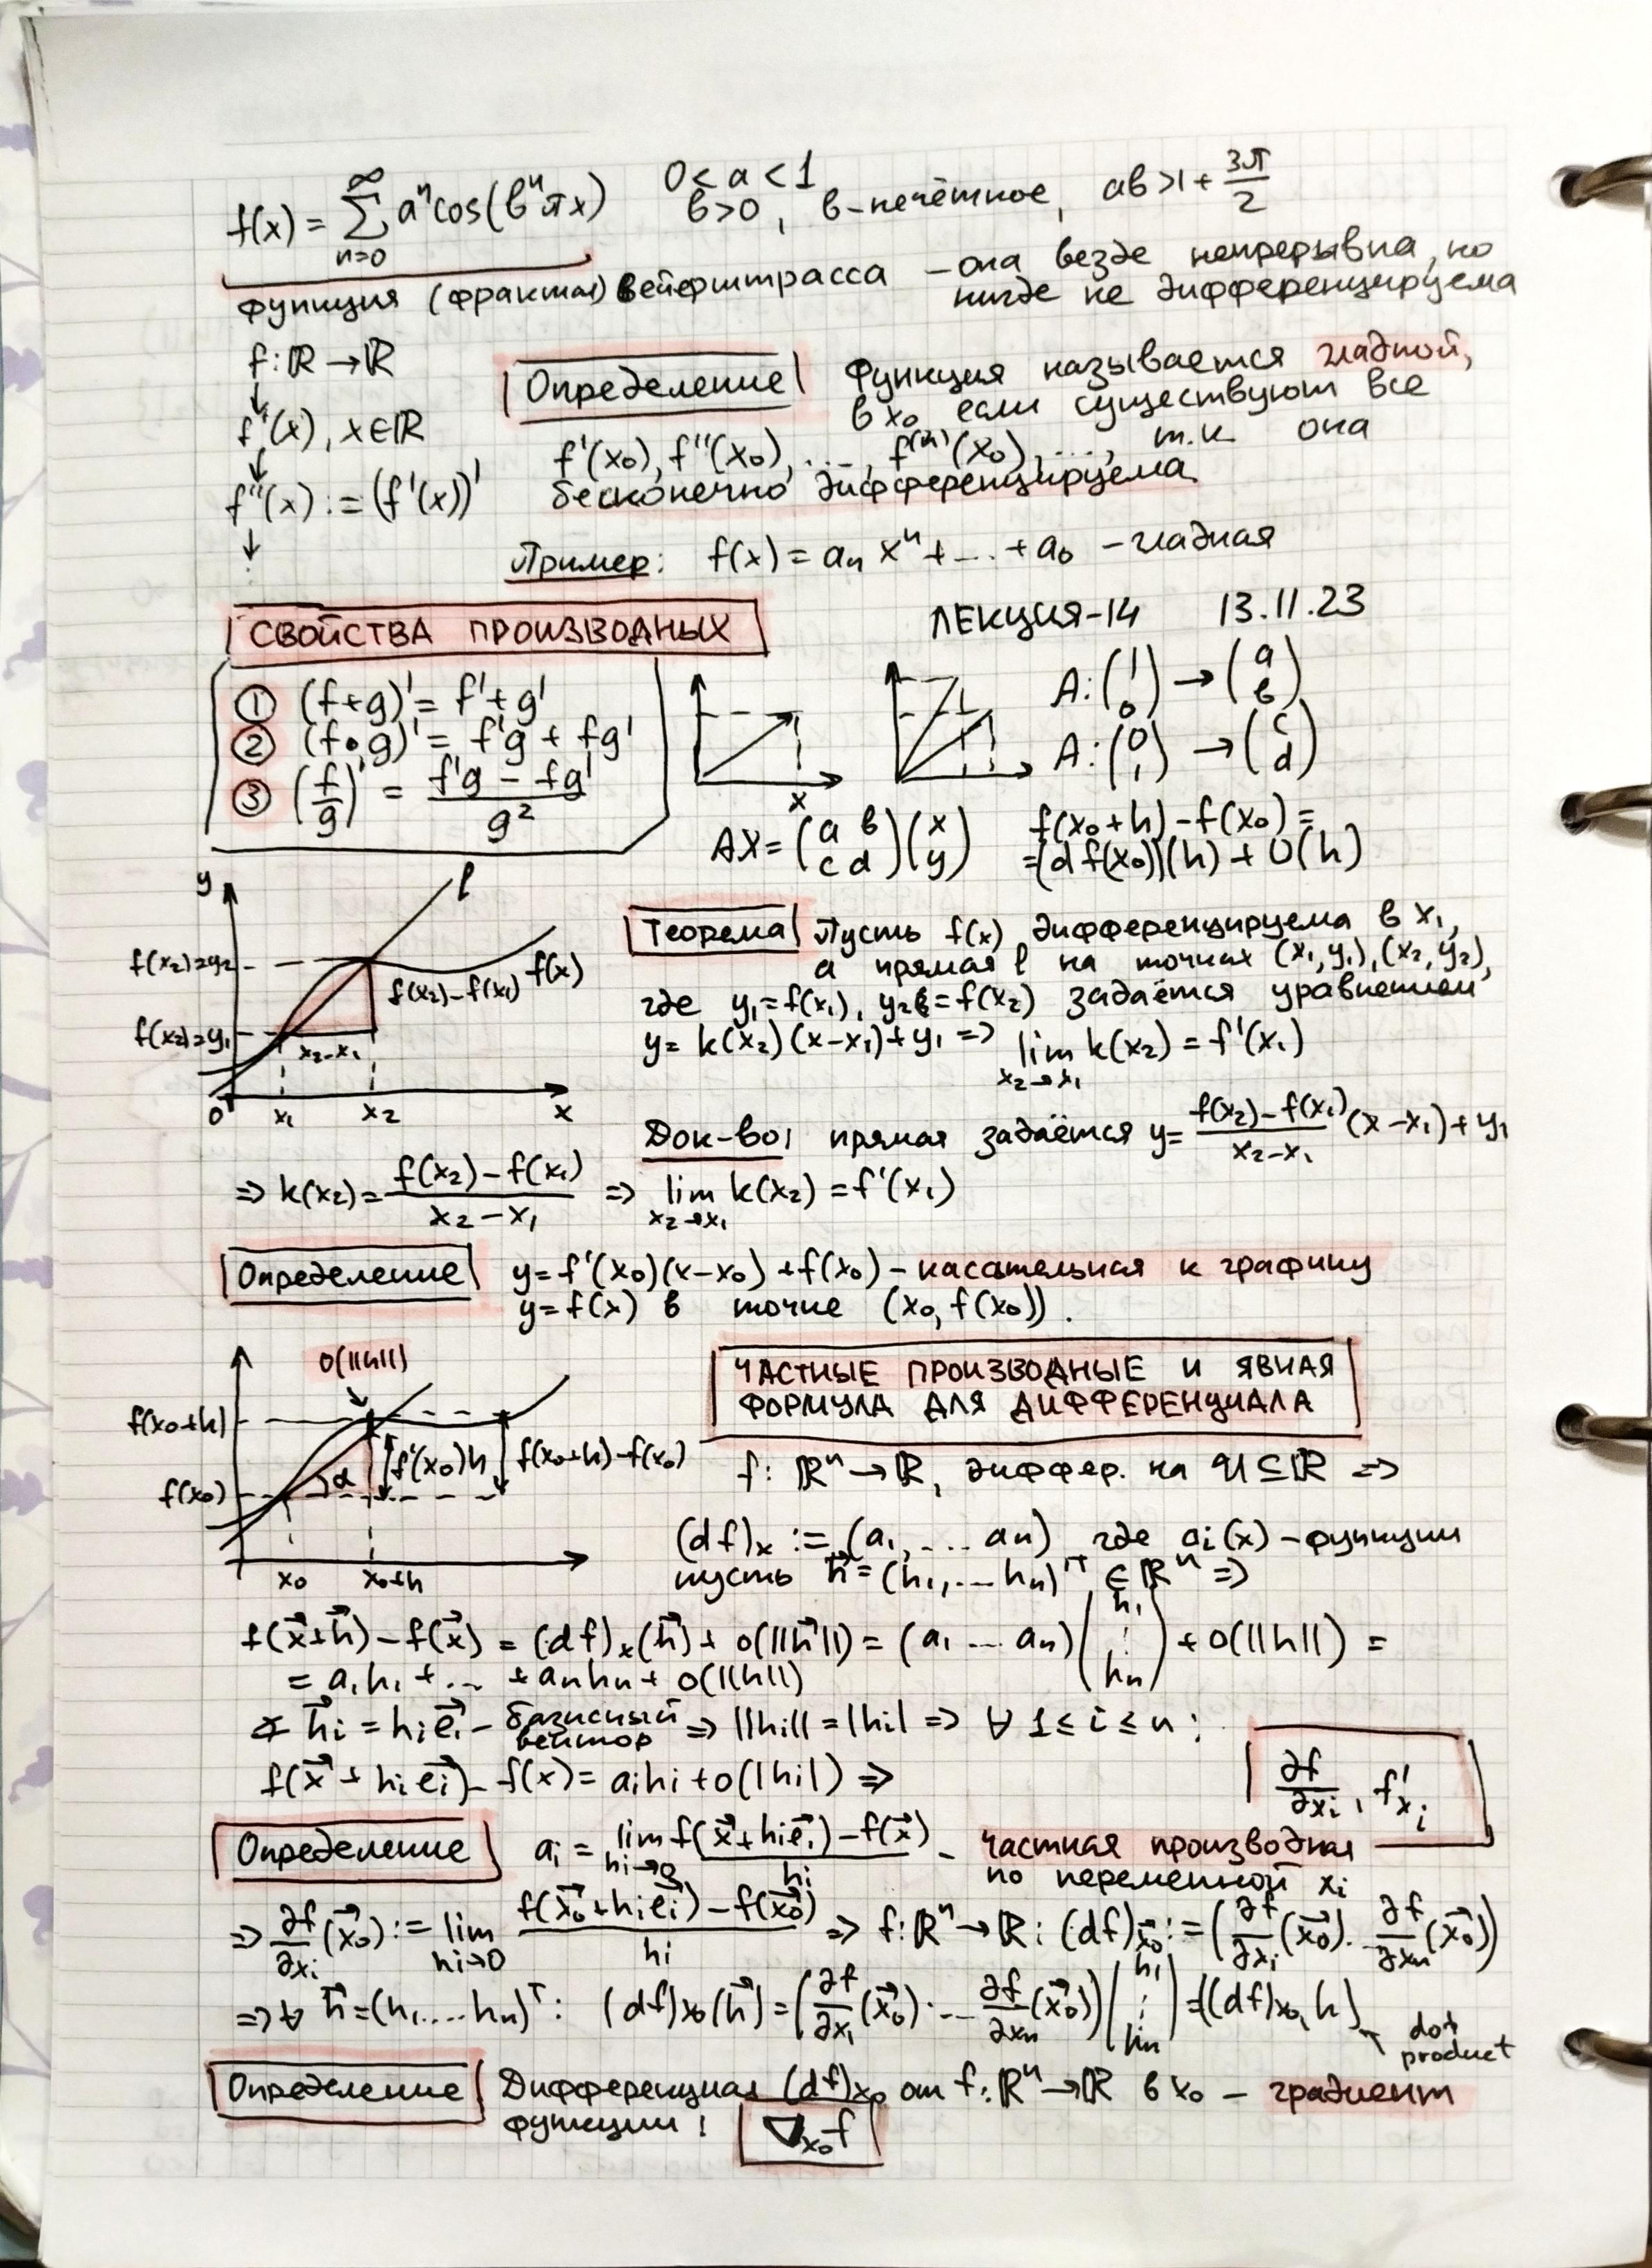 f(x) = ∑_{n=0}^{∞} aⁿcos(bⁿπx)   0 < a < 1
b>0, b-нечётное, ab>1+3π/2
функция (фрактал) Вейерштрасса – она везде непрерывна, но
нигде не дифференцируема
f: ℝ → ℝ
↓
f'(x), x∈ℝ
↓
f''(x) := (f'(x))'
↓
Определение Функция называется гладкой,
в x₀ если существуют все
f'(x₀), f''(x₀), ..., f⁽ⁿ⁾(x₀), ..., т.к. она
бесконечно дифференцируема
Пример: f(x) = aₙxⁿ + ... + a₀ – гладкая
СВОЙСТВА ПРОИЗВОДНЫХ
ЛЕКЦИЯ-14 13.11.23
① (f+g)' = f'+g'
② (f•g)' = f'g + fg'
③ (f/g)' = (f'g – fg')/g²
x
A: (1 0) → (a b)
A: (0 1) → (c d)
AX = (a b; c d)(x y)
f(x₀+h) – f(x₀) =
=(df(x₀))(h) + O(h)
y
l
f(x₂)=y₂
f(x₂)–f(x₁)
f(x)
f(x₂)=y₁
x₂–x₁
0 x₁ x₂ x
Теорема Пусть f(x) дифференцируема в x₁,
а прямая l на точках (x₁,y₁),(x₂,y₂),
где y₁=f(x₁), y₂=f(x₂) задаётся уравнением
y= k(x₂)(x–x₁)+y₁ => lim_{x₂→x₁} k(x₂) = f'(x₁)
Док-во: прямая задаётся y= (f(x₂)–f(x₁))/(x₂–x₁) (x–x₁)+y₁
=> k(x₂)= (f(x₂)–f(x₁))/(x₂–x₁) => lim_{x₂→x₁} k(x₂) = f'(x₁)
Определение y=f'(x₀)(x–x₀)+f(x₀) – касательная к графику
y=f(x) в точке (x₀, f(x₀)).
O(||h||)
f(x₀+h)
f'(x₀)h
f(x₀+h)–f(x₀)
f(x₀)
α
x₀ x₀+h
ЧАСТНЫЕ ПРОИЗВОДНЫЕ И ЯВНАЯ
ФОРМУЛА ДЛЯ ДИФФЕРЕНЦИАЛА
f: ℝⁿ→ℝ, диффер. на U⊆ℝ =>
(df)ₓ := (a₁, ... aₙ) где aᵢ(x) – функции
пусть h⃗=(h₁,...hₙ)ᵀ ∈ℝⁿ =>
f(x⃗+h⃗)–f(x⃗) = (df)ₓ(h⃗)+ o(||h⃗||) = (a₁ ... aₙ)(h₁ ⋮ hₙ) + o(||h||) =
= a₁h₁ + ... + aₙhₙ + o(||h||)
∢ h⃗ᵢ = hᵢe⃗ᵢ – базисный вектор => ||hᵢ|| = |hᵢ| => ∀ 1≤i≤n:
f(x⃗ + hᵢe⃗ᵢ) – f(x) = aᵢhᵢ + o(|hᵢ|) =>
∂f/∂xᵢ, f'ₓᵢ
Определение aᵢ = lim_{hᵢ→0} (f(x⃗+hᵢe⃗ᵢ)–f(x⃗))/hᵢ – частная производная
по переменной xᵢ
=> ∂f/∂xᵢ(x⃗₀) := lim_{hᵢ→0} (f(x⃗₀+hᵢe⃗ᵢ)–f(x⃗₀))/hᵢ => f:ℝⁿ→ℝ: (df)ₓ⃗₀ := (∂f/∂xᵢ(x⃗₀). ∂f/∂xₙ(x⃗₀))
=> ∀ h⃗=(h₁,...hₙ)ᵀ: (df)x₀(h⃗) = (∂f/∂x₁(x⃗₀) ... ∂f/∂xₙ(x⃗₀))(h₁ ⋮ hₙ) = ((df)x₀, h)
dot
product
Определение Дифференциал (df)x₀ от f:ℝⁿ→ℝ в x₀ – градиент
функции: ∇x₀f